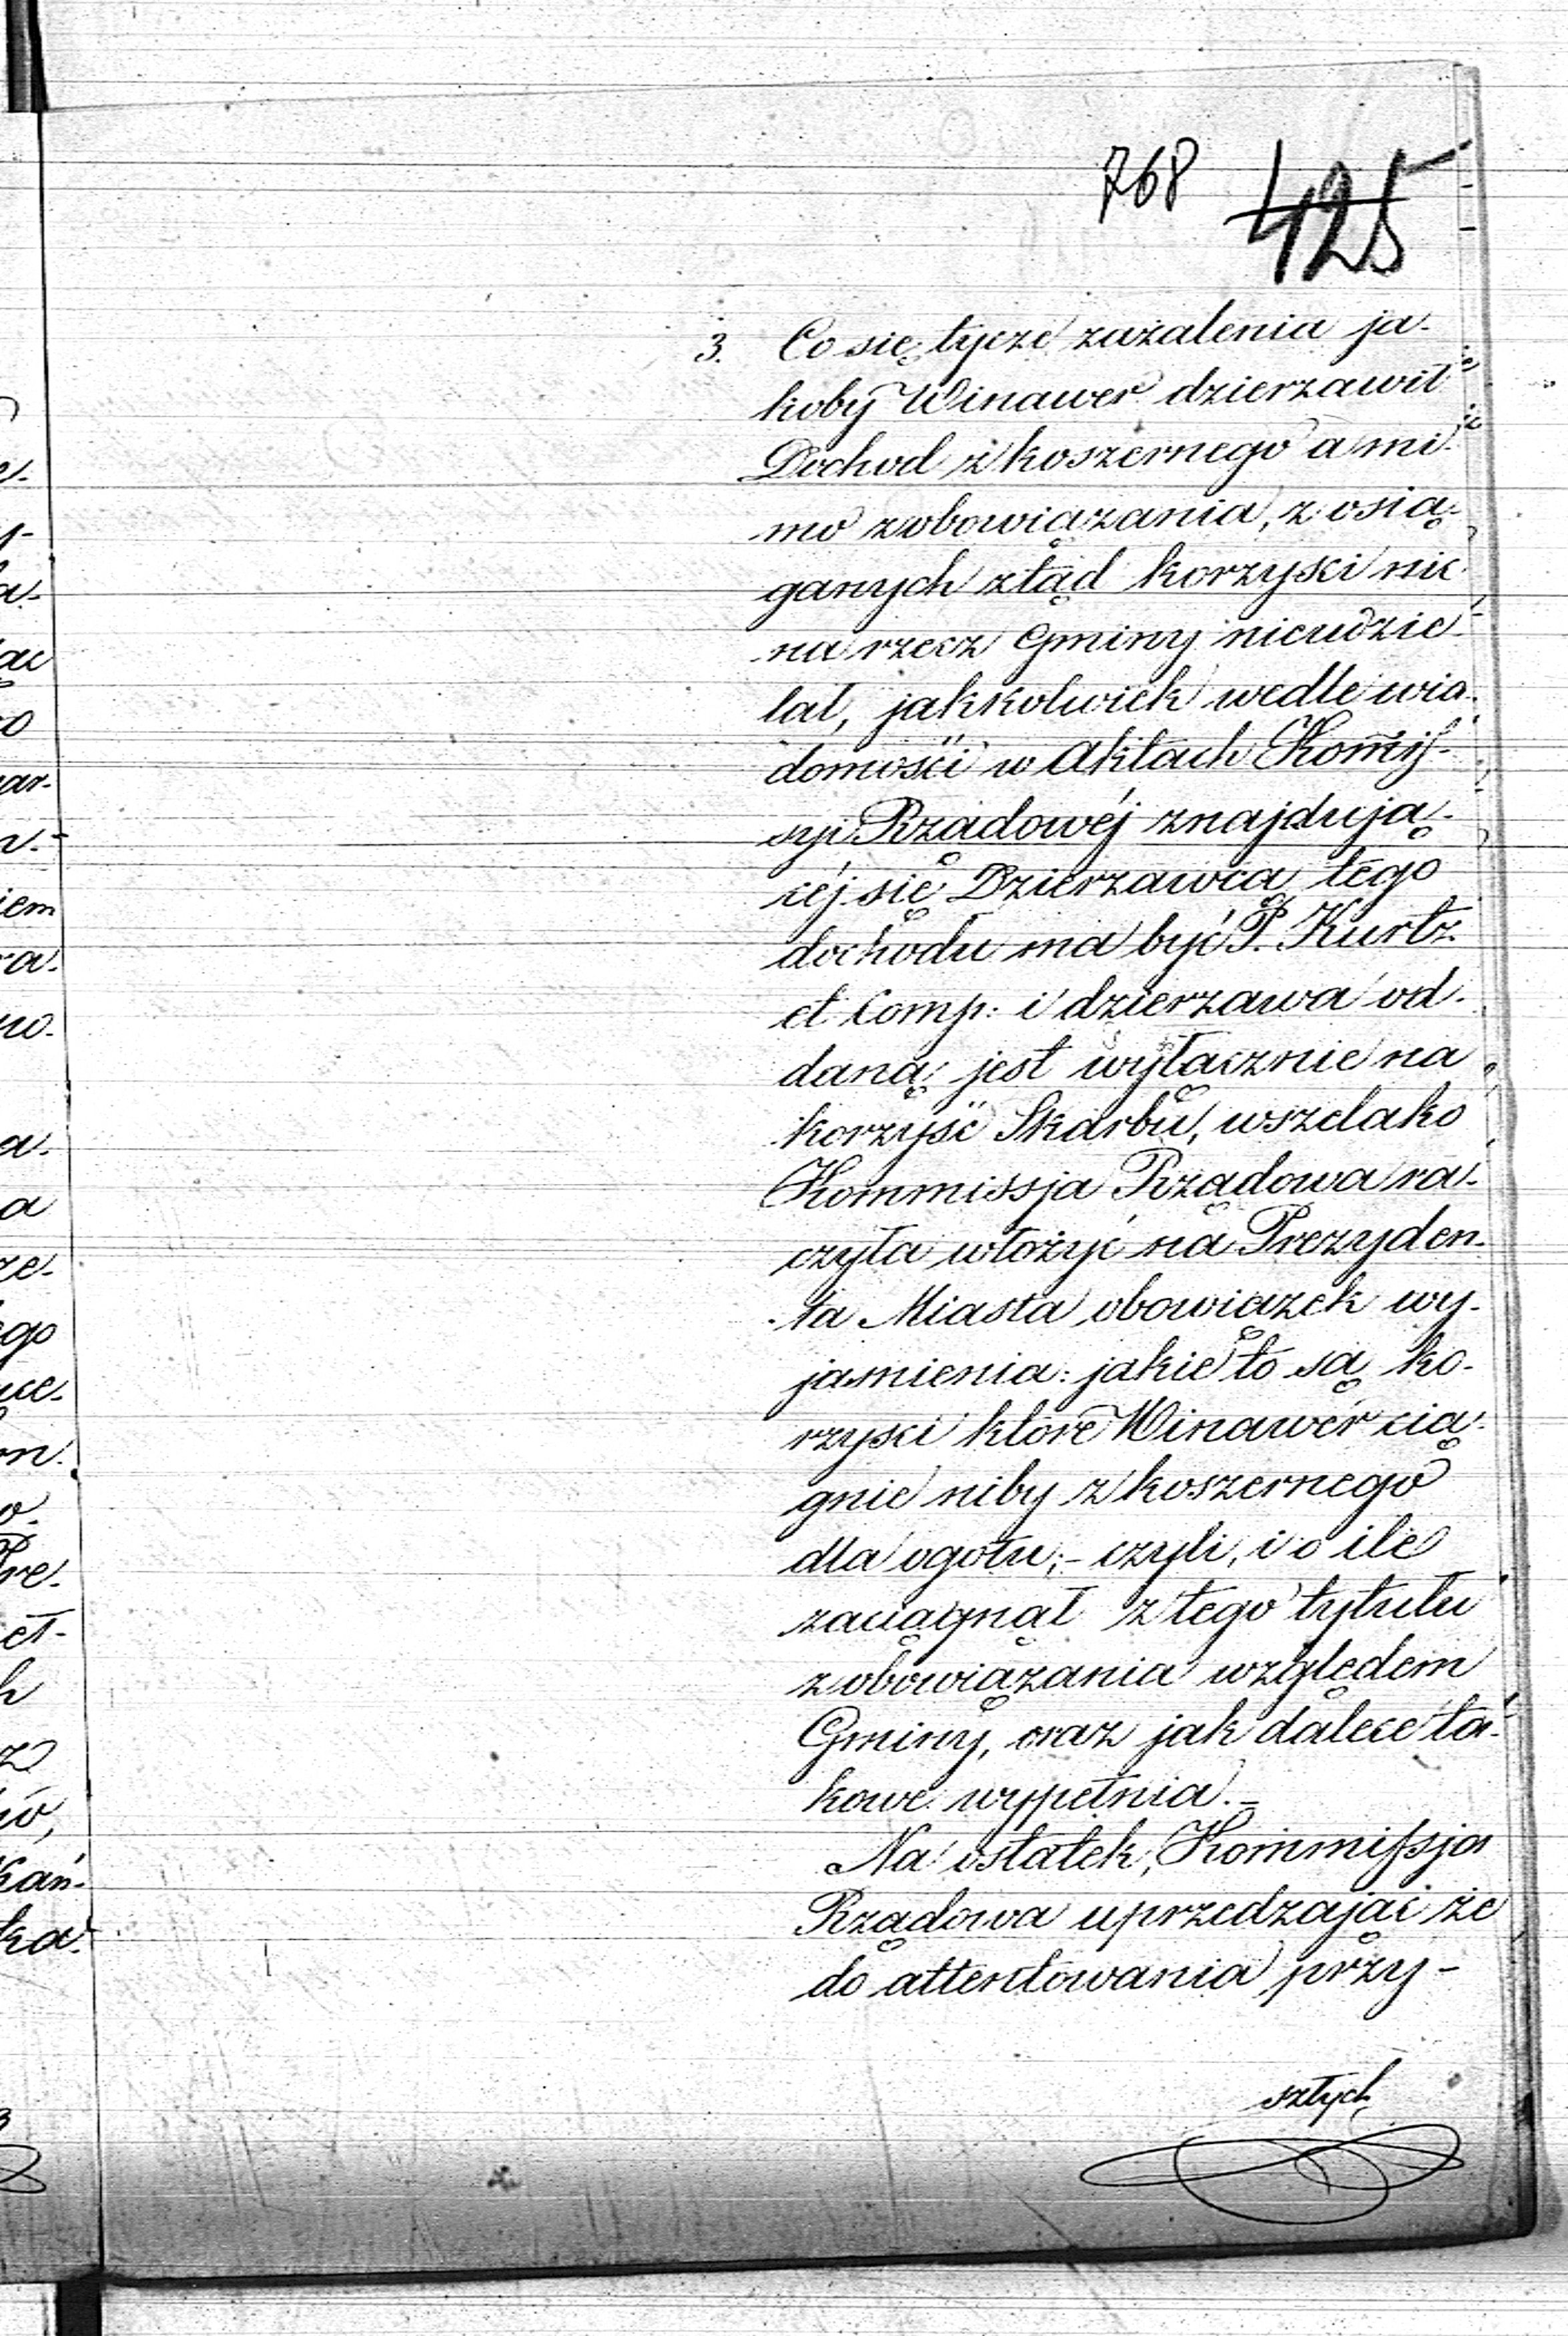 768 425
3. Co się tycze zażalenia ja-
koby Winawer dzierzawił
Dochod z koszernego a mi-
mo zobowiązania, z osią-
ganych ztąd korzysci nic
na rzecz Gminy nieudzie-
lał, jakkolwiek wedle wia-
domości w Aktach Kom̄is-
syi Rządowéj znajdują-
céj się Dzierzawcą tego
dochodu ma być P. Kurtz
et Comp: i dzierzawa od-
daną jest wyłącznie na
korzyść Skarbu, wszelako
Kommissja Rządowa ra-
czyła włożyć na Prezyden-
ta Miasta obowiązek wy-
jasnienia: jakie to są ko-
rzysci które Winawer cią-
gnie niby z koszernego
dla ogołu;- czyli, i o ile
zaciągnął z tego tytułu
zobowiązania względem
Gminy, oraz jak dalece ta-
kowe wypełnia.-
Na ostatek, Kommissja
Rządowa uprzedzając że
do attentowania przy-
szłych